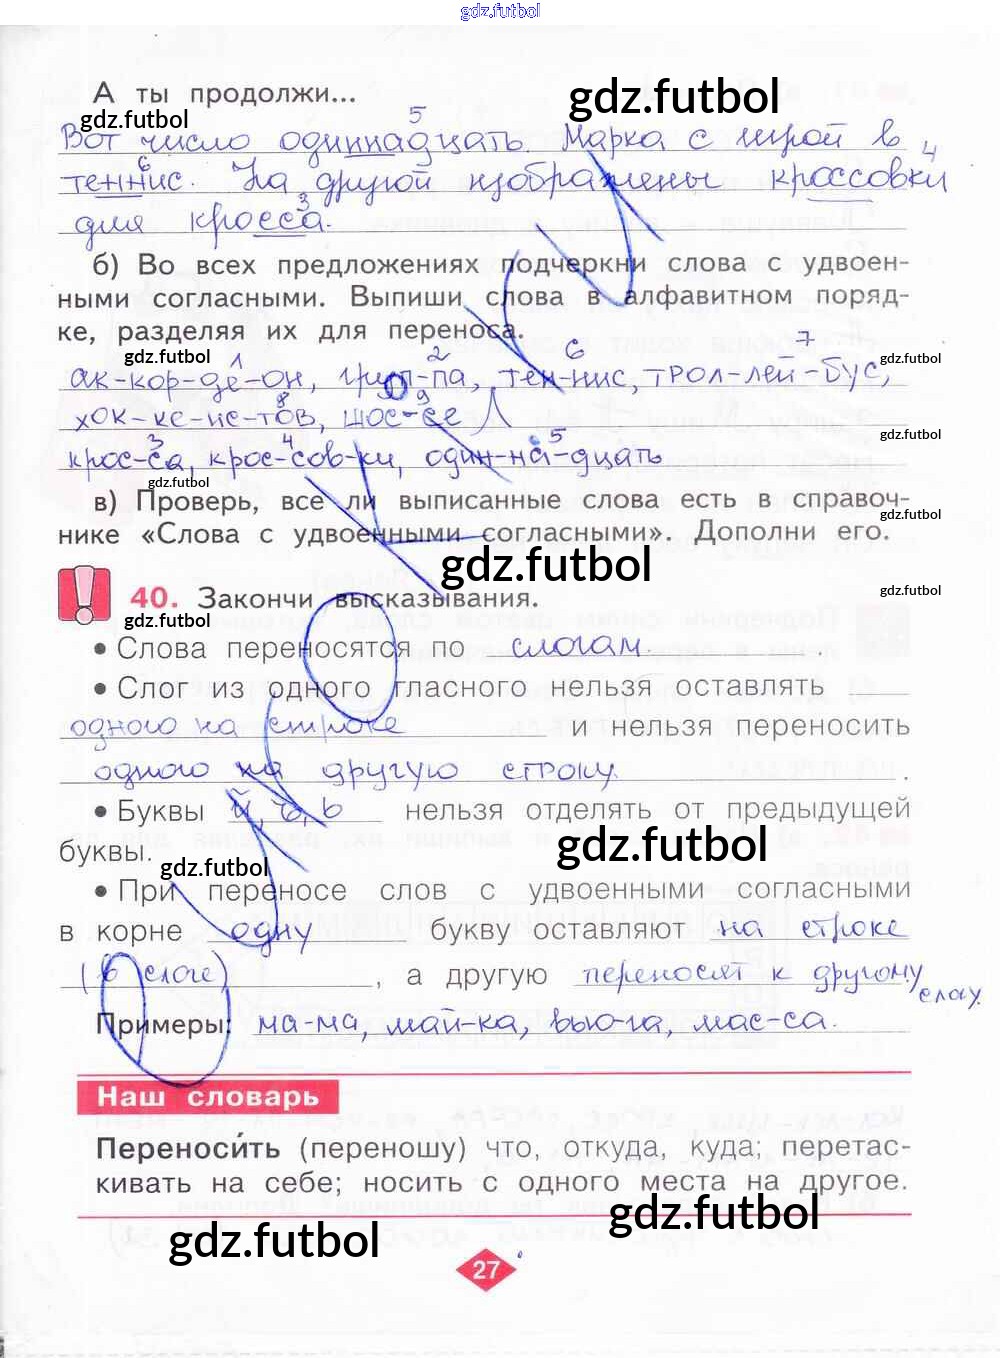 gdz.futbol
А ты продолжи...
gdz.futbol
gdz.futbol
5
Вот число одиннадцать. Марка с игрой в
6 4
теннис. На другой изображены кроссовки
3
для кросса.
б) Во всех предложениях подчеркни слова с удвоен-
ными согласными. Выпиши слова в алфавитном поряд-
ке, разделяя их для переноса.
gdz.futbol 1 2 6 7 gdz.futbol
ак-кор-де-он, груп-па, тен-нис, трол-лей-бус,
8 9
хок-ке-ис-тов, шос-се
gdz.futbol
3 4 5
крос-са, крос-сов-ки, один-на-дцать
gdz.futbol
в) Проверь, все ли выписанные слова есть в справоч-
gdz.futbol
нике «Слова с удвоенными согласными». Дополни его.
gdz.futbol
40. Закончи высказывания.
gdz.futbol
gdz.futbol
• Слова переносятся по слогам.
• Слог из одного гласного нельзя оставлять
одного на строке и нельзя переносить
одного на другую строку.
• Буквы й, ъ, ь нельзя отделять от предыдущей
буквы.
gdz.futbol
gdz.futbol
• При переносе слов с удвоенными согласными
в корне одну букву оставляют на строке
(в слоге), а другую переносят к другому
слогу.
Примеры: ма-ма, май-ка, вью-га, мас-са.
Наш словарь
Переноси́ть (переношу) что, откуда, куда; перетас-
кивать на себе; носить с одного места на другое.
gdz.futbol
gdz.futbol
27